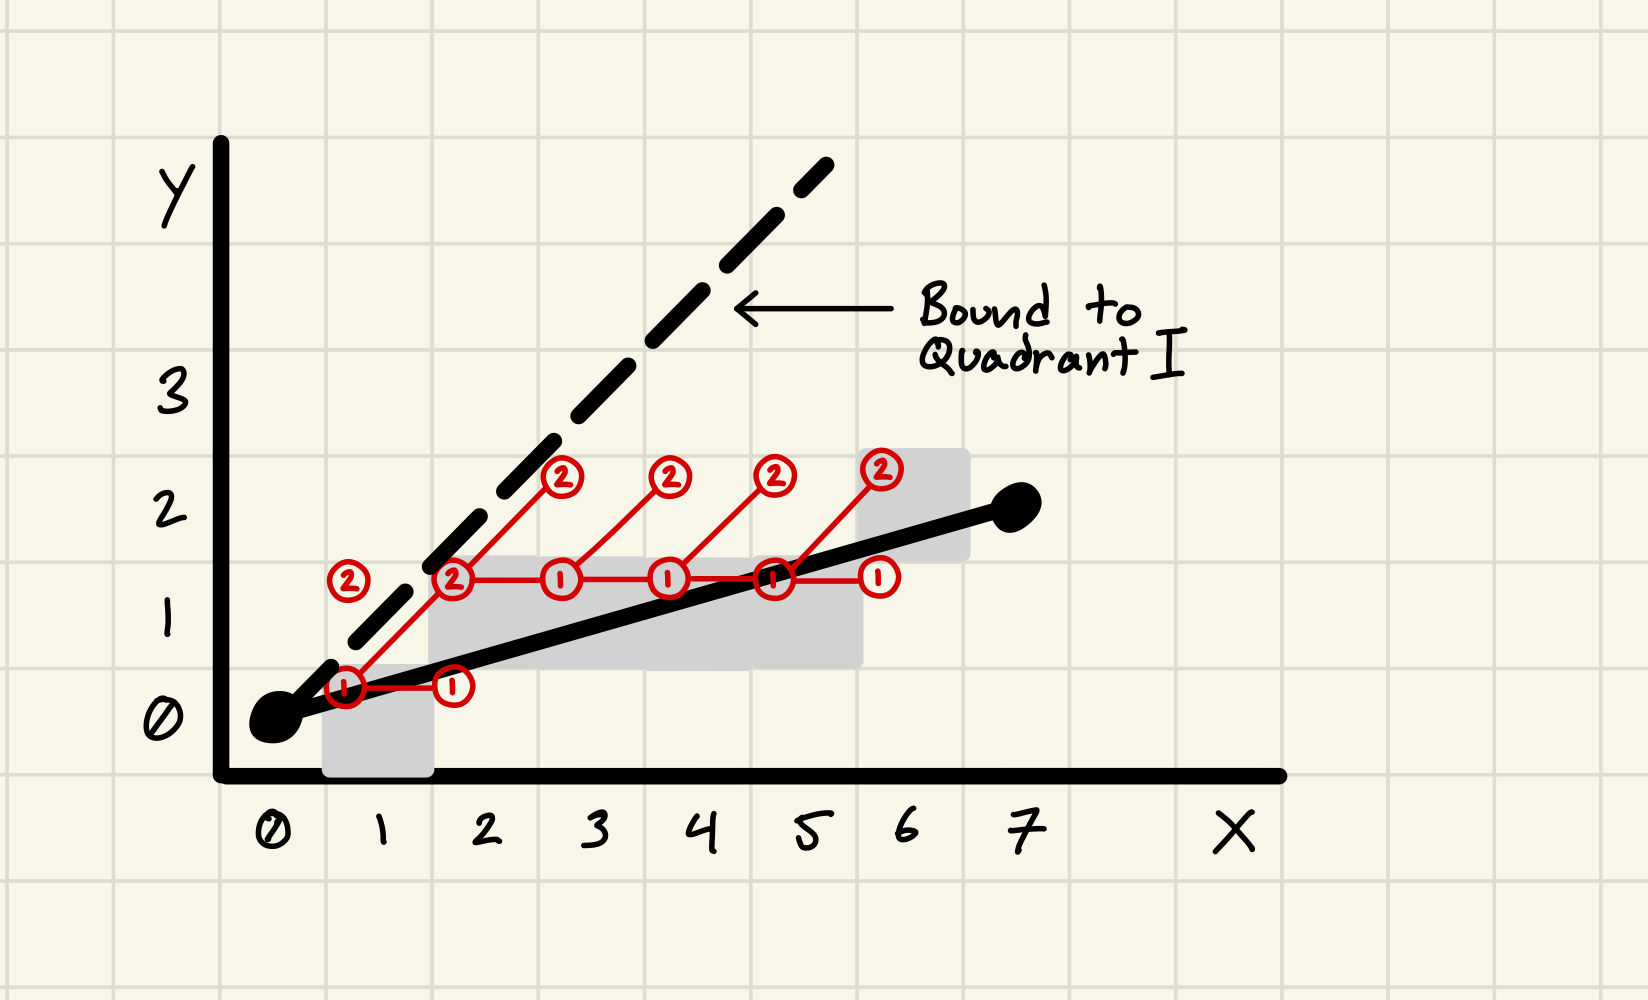 Y
Bound to
Quadrant I
3
2 2 2 2
2
2 2 1 1 1 1
1
1 1
0
0 1 2 3 4 5 6 7 X